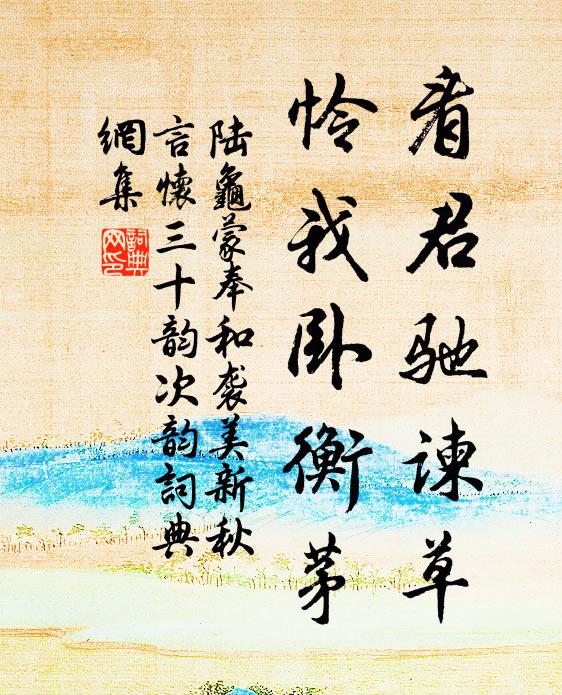 看君馳諫草
怜我卧衡茅
陆龜蒙奉和袭美新秋
言懷三十韵次韵詞典
網集
詞典
网印